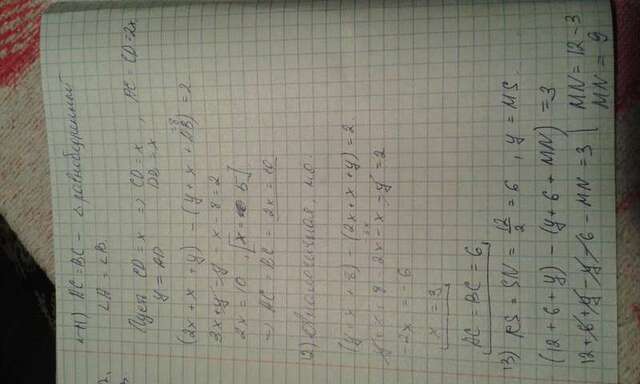 11) AC = BC – Δ равнобедренный
∠A = ∠B.
Пусть CD = x ⇒ CD = x, AC = CD = 2x
y = AD DB = x
(2x + x + y) – (y + x + AB) = 2
3x + y – y – x – 8 = 2
2x = 10, x = 5
⇒ AC = BC = 2x = 10
12) Аналогичная, н.о.
(y + x + 8) – (2x + x + y) = 2
y + x + 8 – 2x – x – y = 2
–2x = –6
x = 3
AC = BC = 6
13) RS = SN = 12/2 = 6, y = MS.
(12 + 6 + y) – (y + 6 + MN) = 3
12 + 6 + y – y – 6 – MN = 3 | MN = 12 – 3
MN = 9